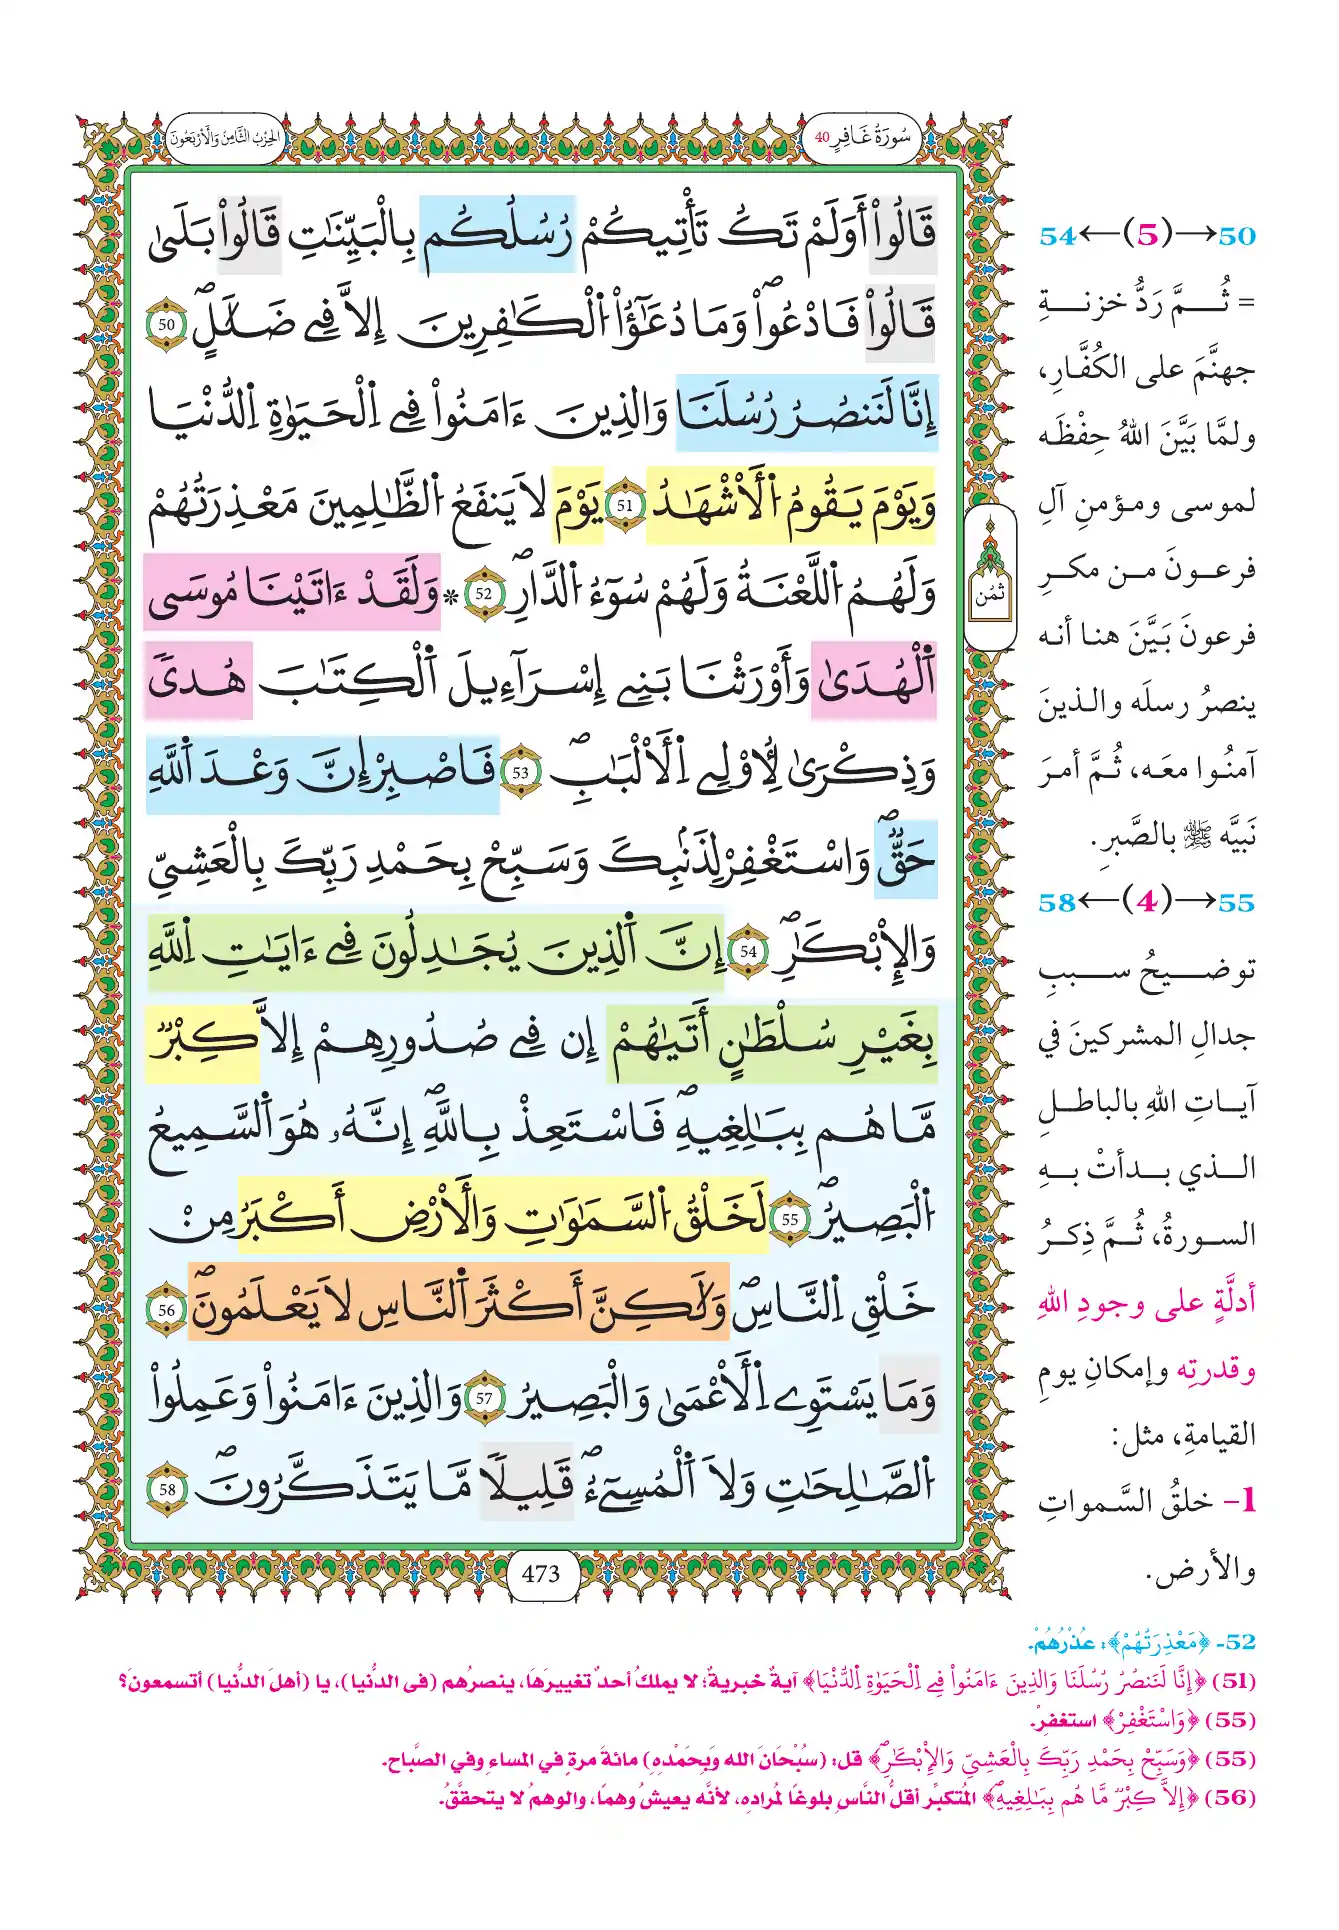 سُورَةُ غَافِرٍ 40
الحِزْبُ الثَّامِنُ وَالْأَرْبَعُونَ
قَالُوٓاْ أَوَلَمْ تَكُ تَأْتِيكُمْ رُسُلُكُم بِالْبَيِّنَٰتِ قَالُواْ بَلَىٰ
قَالُواْ فَادْعُواْ وَمَا دُعَٰٓؤُاْ اُلْكَٰفِرِينَ إِلَّا فِے ضَلَٰلٍ 50
إِنَّا لَنَنصُرُ رُسُلَنَا وَالذِينَ ءَامَنُواْ فِے اِلْحَيَوٰةِ اِلدُّنْيَا
وَيَوْمَ يَقُومُ اُلْأَشْهَٰدُ 51 يَوْمَ لَا يَنفَعُ اُلظَّٰلِمِينَ مَعْذِرَتُهُمْ
وَلَهُمُ اُللَّعْنَةُ وَلَهُمْ سُوٓءُ اُلدَّارِ 52 * وَلَقَدْ ءَاتَيْنَا مُوسَى
اَلْهُدَىٰ وَأَوْرَثْنَا بَنِے إِسْرَآءِيلَ اَلْكِتَٰبَ هُدىٗ
وَذِكْرَىٰ لِأُوْلِے اِلْأَلْبَٰبِ 53 فَاصْبِرْ إِنَّ وَعْدَ اَللَّهِ
حَقّٞ وَاسْتَغْفِرْ لِذَنۢبِكَ وَسَبِّحْ بِحَمْدِ رَبِّكَ بِالْعَشِيِّ
وَالْإِبْكَٰرِ 54 إِنَّ اَلذِينَ يُجَٰدِلُونَ فِے ءَايَٰتِ اِللَّهِ
بِغَيْرِ سُلْطَٰنٍ أَتَىٰهُمْ إِن فِے صُدُورِهِمْ إِلَّا كِبْرٞ
مَّا هُم بِبَٰلِغِيهِ فَاسْتَعِذْ بِاللَّهِ إِنَّهُۥ هُوَ اَلسَّمِيعُ
اُلْبَصِيرُ 55 لَخَلْقُ اُلسَّمَٰوَٰتِ وَالْأَرْضِ أَكْبَرُ مِنْ
خَلْقِ اِلنَّاسِ وَلَٰكِنَّ أَكْثَرَ اَلنَّاسِ لَا يَعْلَمُونَ 56
وَمَا يَسْتَوِے اِلْأَعْمَىٰ وَالْبَصِيرُ 57 وَالذِينَ ءَامَنُواْ وَعَمِلُواْ
اُلصَّٰلِحَٰتِ وَلَا اَلْمُسِےٓءُ قَلِيلٗا مَّا يَتَذَكَّرُونَ 58
ثُمُن
473
50→(5)←54
= ثُمَّ رَدُّ خزنةِ
جهنَّمَ على الكُفَّارِ،
ولمَّا بَيَّنَ اللهُ حِفْظَه
لموسى ومؤمنِ آلِ
فرعونَ من مكرِ
فرعونَ بَيَّنَ هنا أنه
ينصرُ رسلَه والذينَ
آمنُوا معَه، ثُمَّ أمرَ
نَبيَّه ﷺ بالصَّبرِ.
55→(4)←58
توضيحُ سببِ
جدالِ المشركينَ في
آياتِ اللهِ بالباطلِ
الذي بدأتْ بهِ
السورةُ، ثُمَّ ذِكرُ
أدلَّةٍ على وجودِ اللهِ
وقدرتِه وإمكانِ يومِ
القيامةِ، مثل:
1- خلقُ السَّمواتِ
والأرضِ.
52- ﴿مَعْذِرَتُهُمْ﴾: عُذْرُهُمْ.
(51) ﴿إِنَّا لَنَنصُرُ رُسُلَنَا وَالذِينَ ءَامَنُواْ فِے اِلْحَيَوٰةِ اِلدُّنْيَا﴾ آيةٌ خبريةٌ؛ لا يملكُ أحدٌ تغييرَهَا، ينصرُهم (في الدُّنيا)، يا (أهلَ الدُّنيا) أتسمعونَ؟
(55) ﴿وَاسْتَغْفِرْ﴾ استغفرْ.
(55) ﴿وَسَبِّحْ بِحَمْدِ رَبِّكَ بِالْعَشِيِّ وَالْإِبْكَٰرِ﴾ قل: (سُبْحَانَ الله وَبِحَمْدِهِ) مائةَ مرةٍ في المساءِ وفي الصَّباحِ.
(56) ﴿إِلَّا كِبْرٞ مَّا هُم بِبَٰلِغِيهِ﴾ المُتكبِّر أقلُّ النَّاسِ بلوغًا لمُرادِهِ، لأنَّه يعيشُ وهمًا، والوهمُ لا يتحقَّقُ.